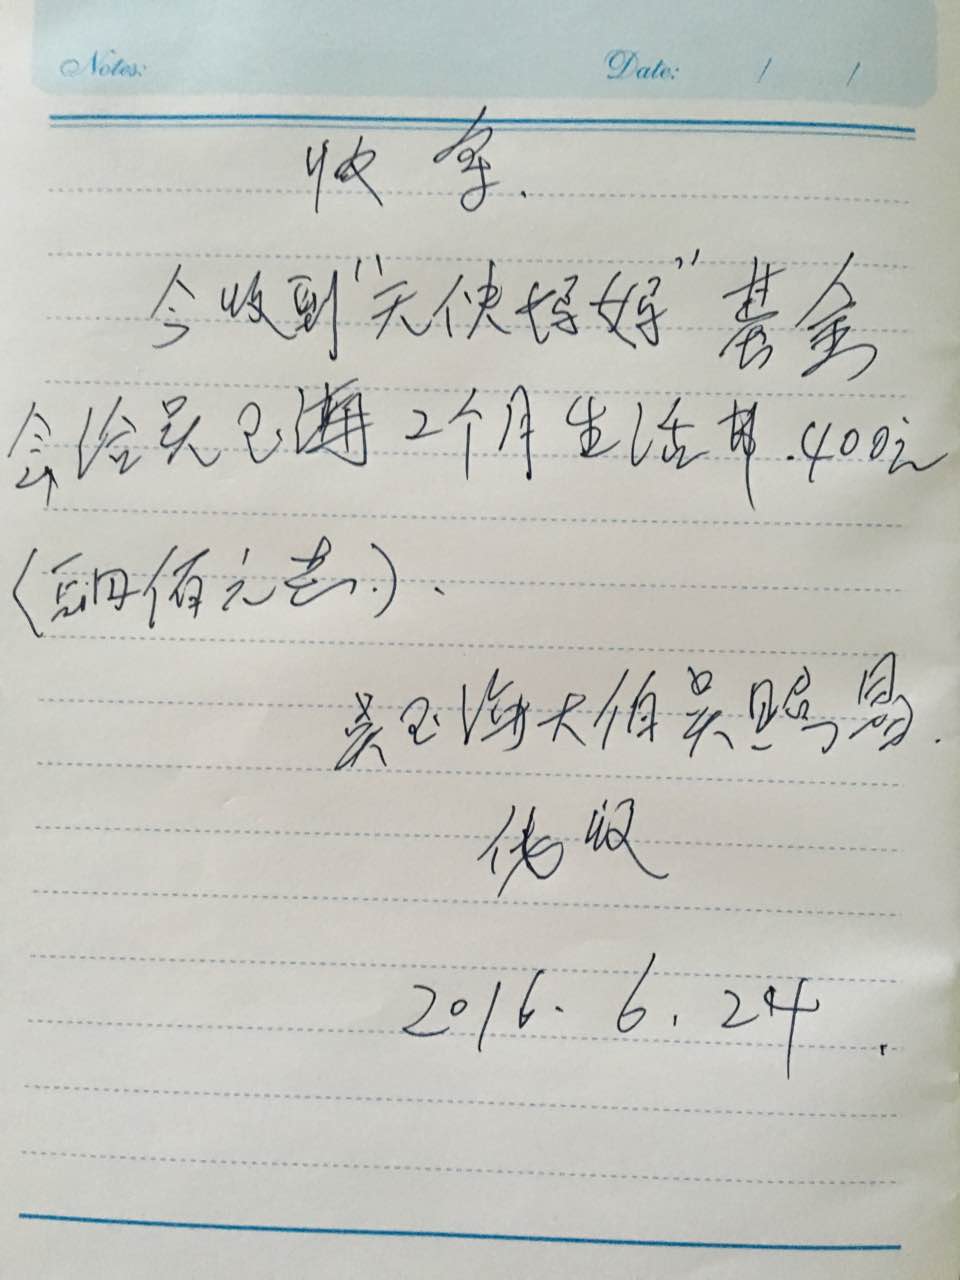 Notes:
Date: / /
收条.
今收到"天使妈妈"基金
会给吴玉海2个月生活费.400元
(肆佰元整.).
吴玉海大伯吴
代收
2016.6.24.